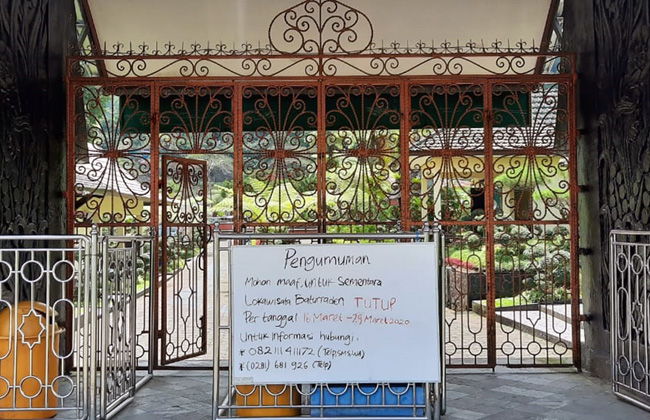 Pengumuman
Mohon maaf, untuk Sementara
Lokawisata Baturraden TUTUP
Per tanggal 16 Maret - 29 Maret 2020
Untuk informasi hubungi
* 082 111 411172 (Telp,sms,wa)
* (0281) 681 925 (Telp)